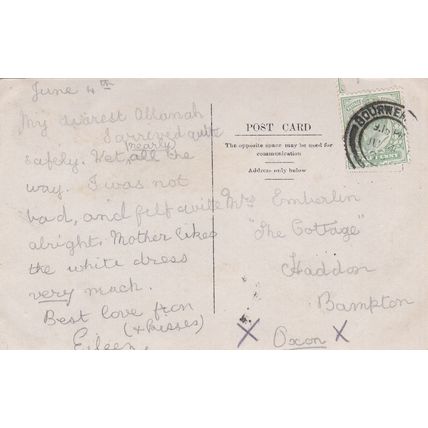 June 4th
My dearest
I arrived quite
safely. Wet, nearly all the
way. I was not
bad, and felt quite
alright. Mother likes
the white dress
very much.
Best love from
(& kisses)
Eileen.
POST CARD
The opposite space may be used for
communication
Address only below
BOURNEM
Mrs Emberlin
"The Cottage"
Haddon
Bampton
X Oxon X